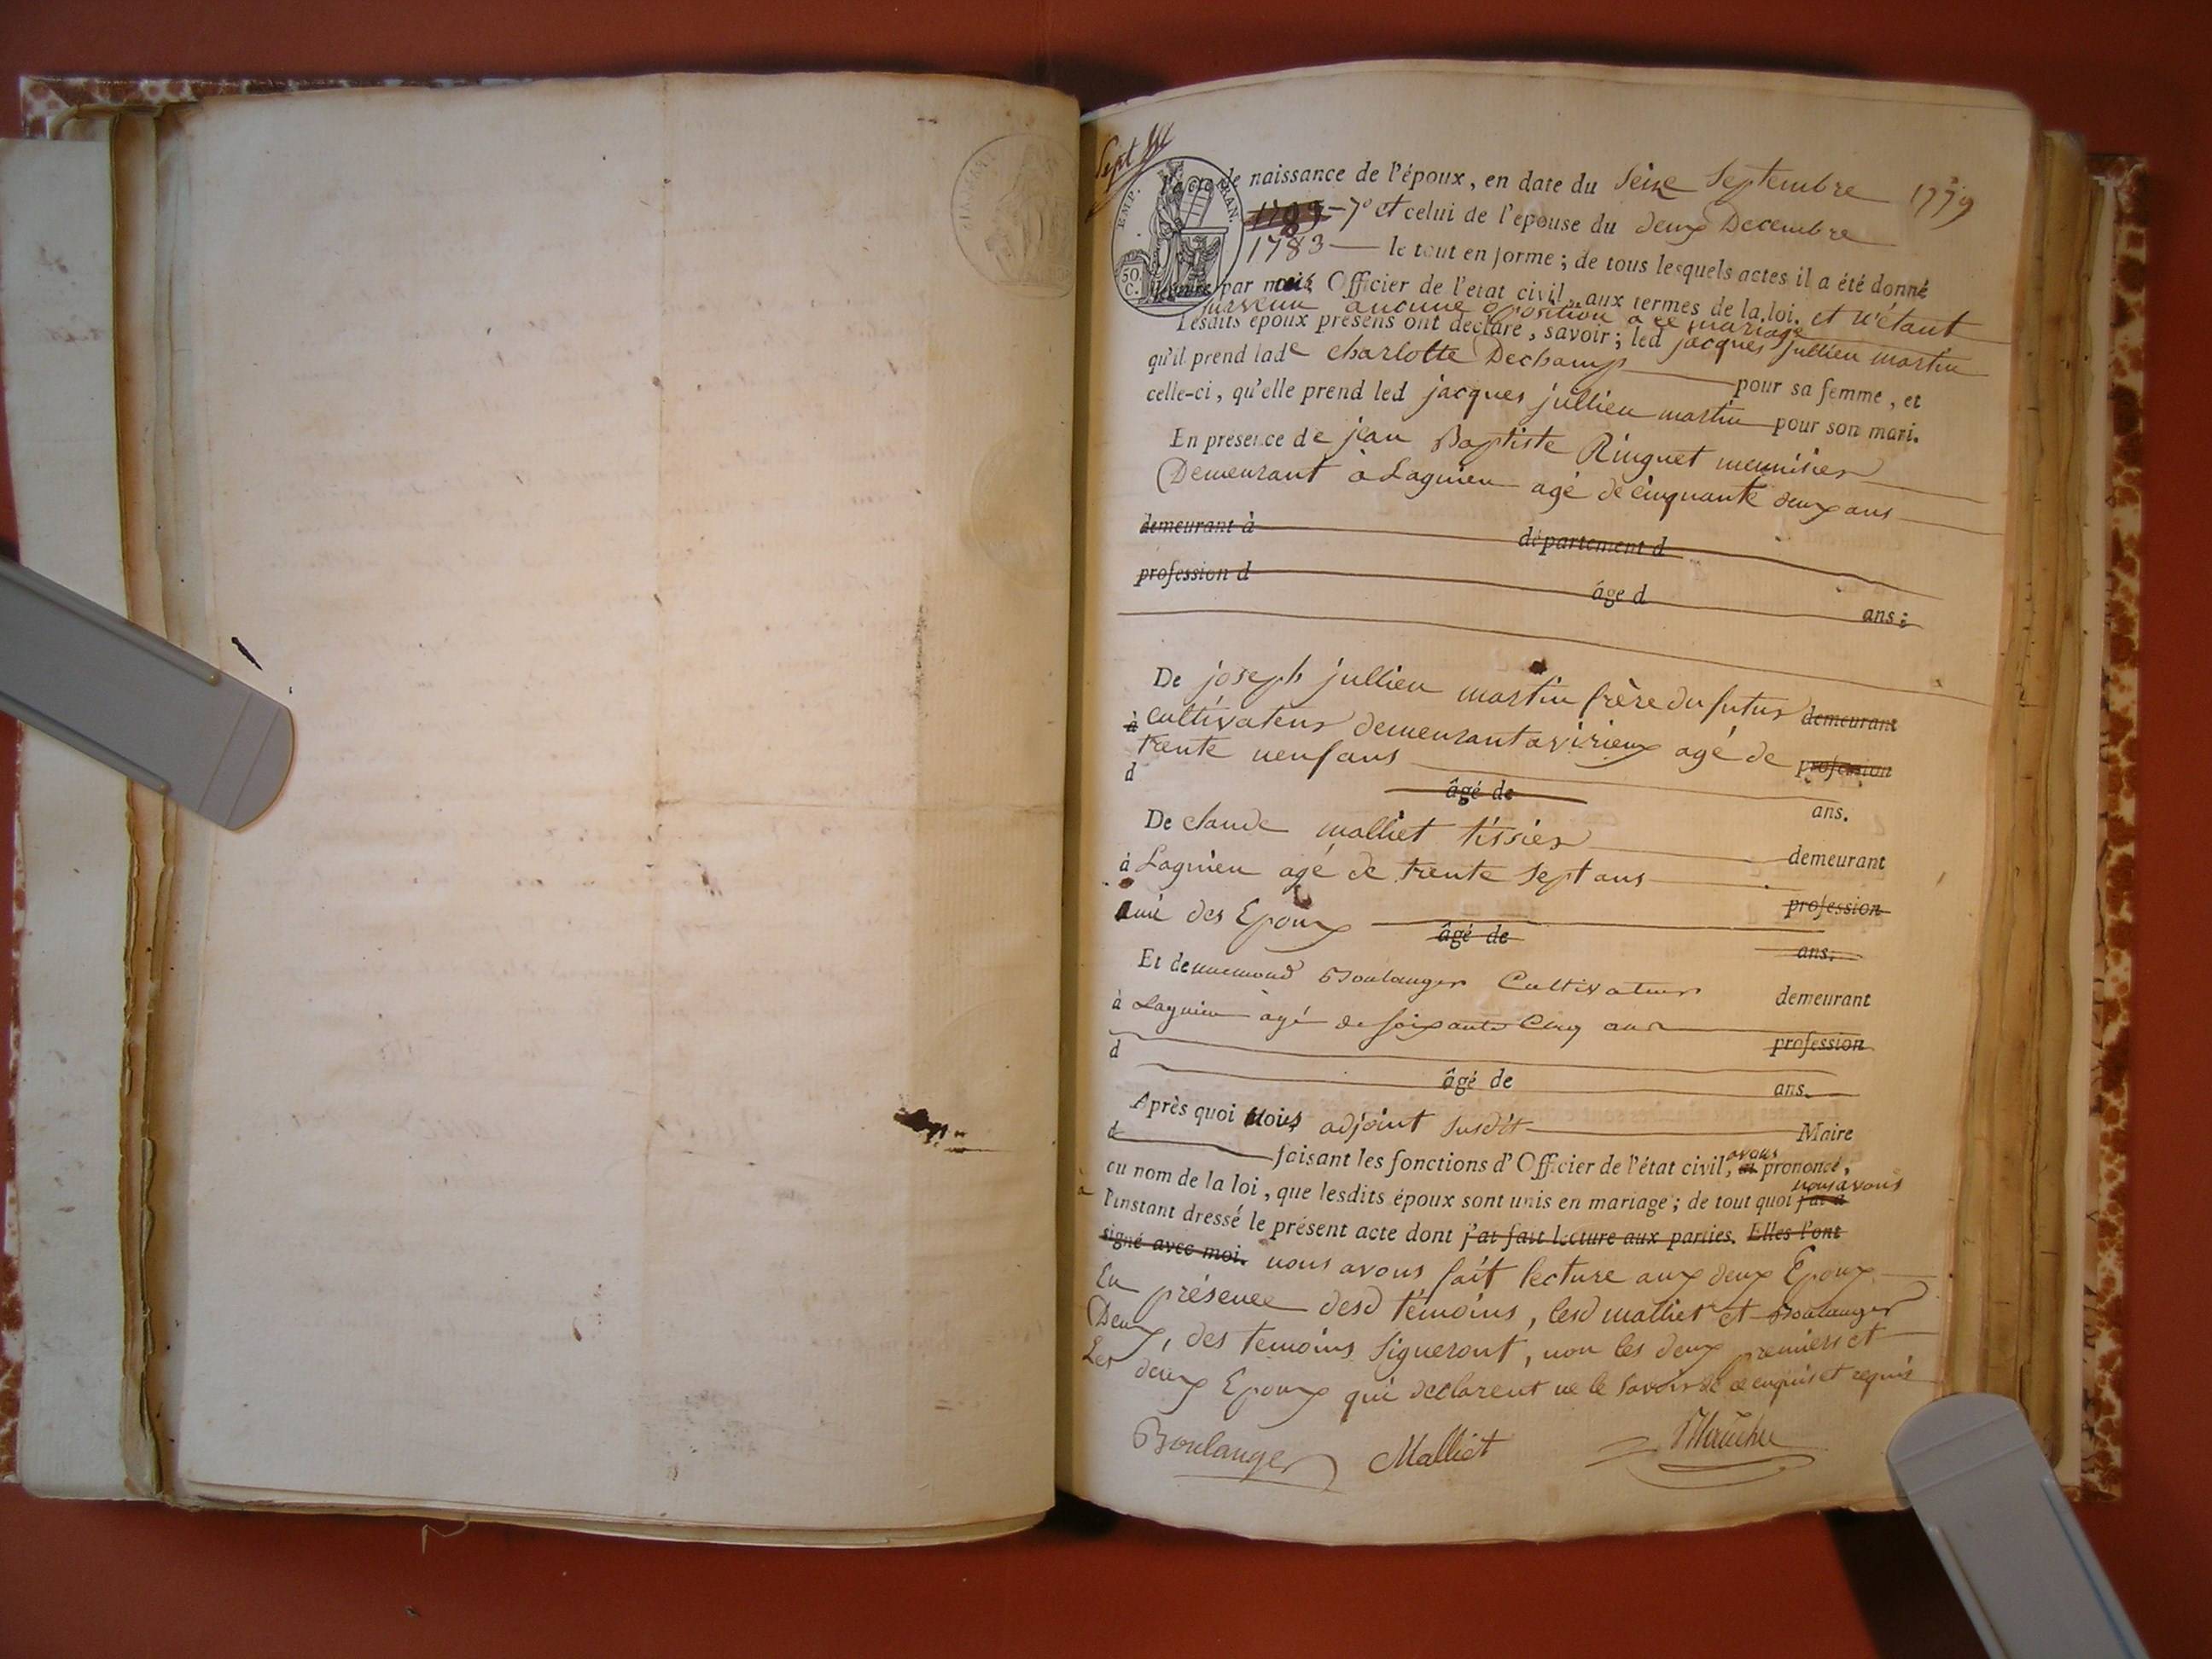 Sept
EMP. FRAN.
50 C.
l'acte de naissance de l'époux, en date du Seize Septembre 1779
1789 - 7º et celui de l'epouse du deux Decembre
1783 — le tout en forme ; de tous lesquels actes il a été donné
lecture par nous Officier de l'etat civil, aux termes de la loi. et n'étant
survenu aucune oposition a ce mariage
Lesdits époux présens ont déclaré, savoir ; led jacques jullien martin
qu'il prend lade charlotte Dechamp — pour sa femme, et
celle-ci, qu'elle prend led jacques jullien martin pour son mari.
En presence de jean Baptiste Ringuet menuisier
Demeurant à Lagnieu agé de cinquante deux ans
demeurant à département d
profession d âge d ans :
De joseph jullien martin frère du futur demeurant
à cultivateur demeurant a virieux agé de profession
trente neuf ans
d âgé de ans.
De claude malliet tissier demeurant
à Lagnieu agé de trente sept ans profession
ami des Epoux âgé de ans.
Et de Boulanger Cultivateur demeurant
à Lagnieu agé de soixante Cinq ans profession
d âgé de ans.
Après quoi nous adjoint susdit Maire
d faisant les fonctions d'Officier de l'état civil, avons ai prononcé,
au nom de la loi, que lesdits époux sont unis en mariage ; de tout quoi nous avons j'ai à
à l'instant dressé le présent acte dont j'ai fait lecture aux parties. Elles l'ont
signé avec moi. nous avons fait lecture aux deux Epoux
En présence desd témoins, lesd malliet et Boulanger
Deux, des temoins signeront, non les deux premiers et
Les deux Epoux qui declarent ne le savoir de ce enquis et requis
Boulanger Malliet